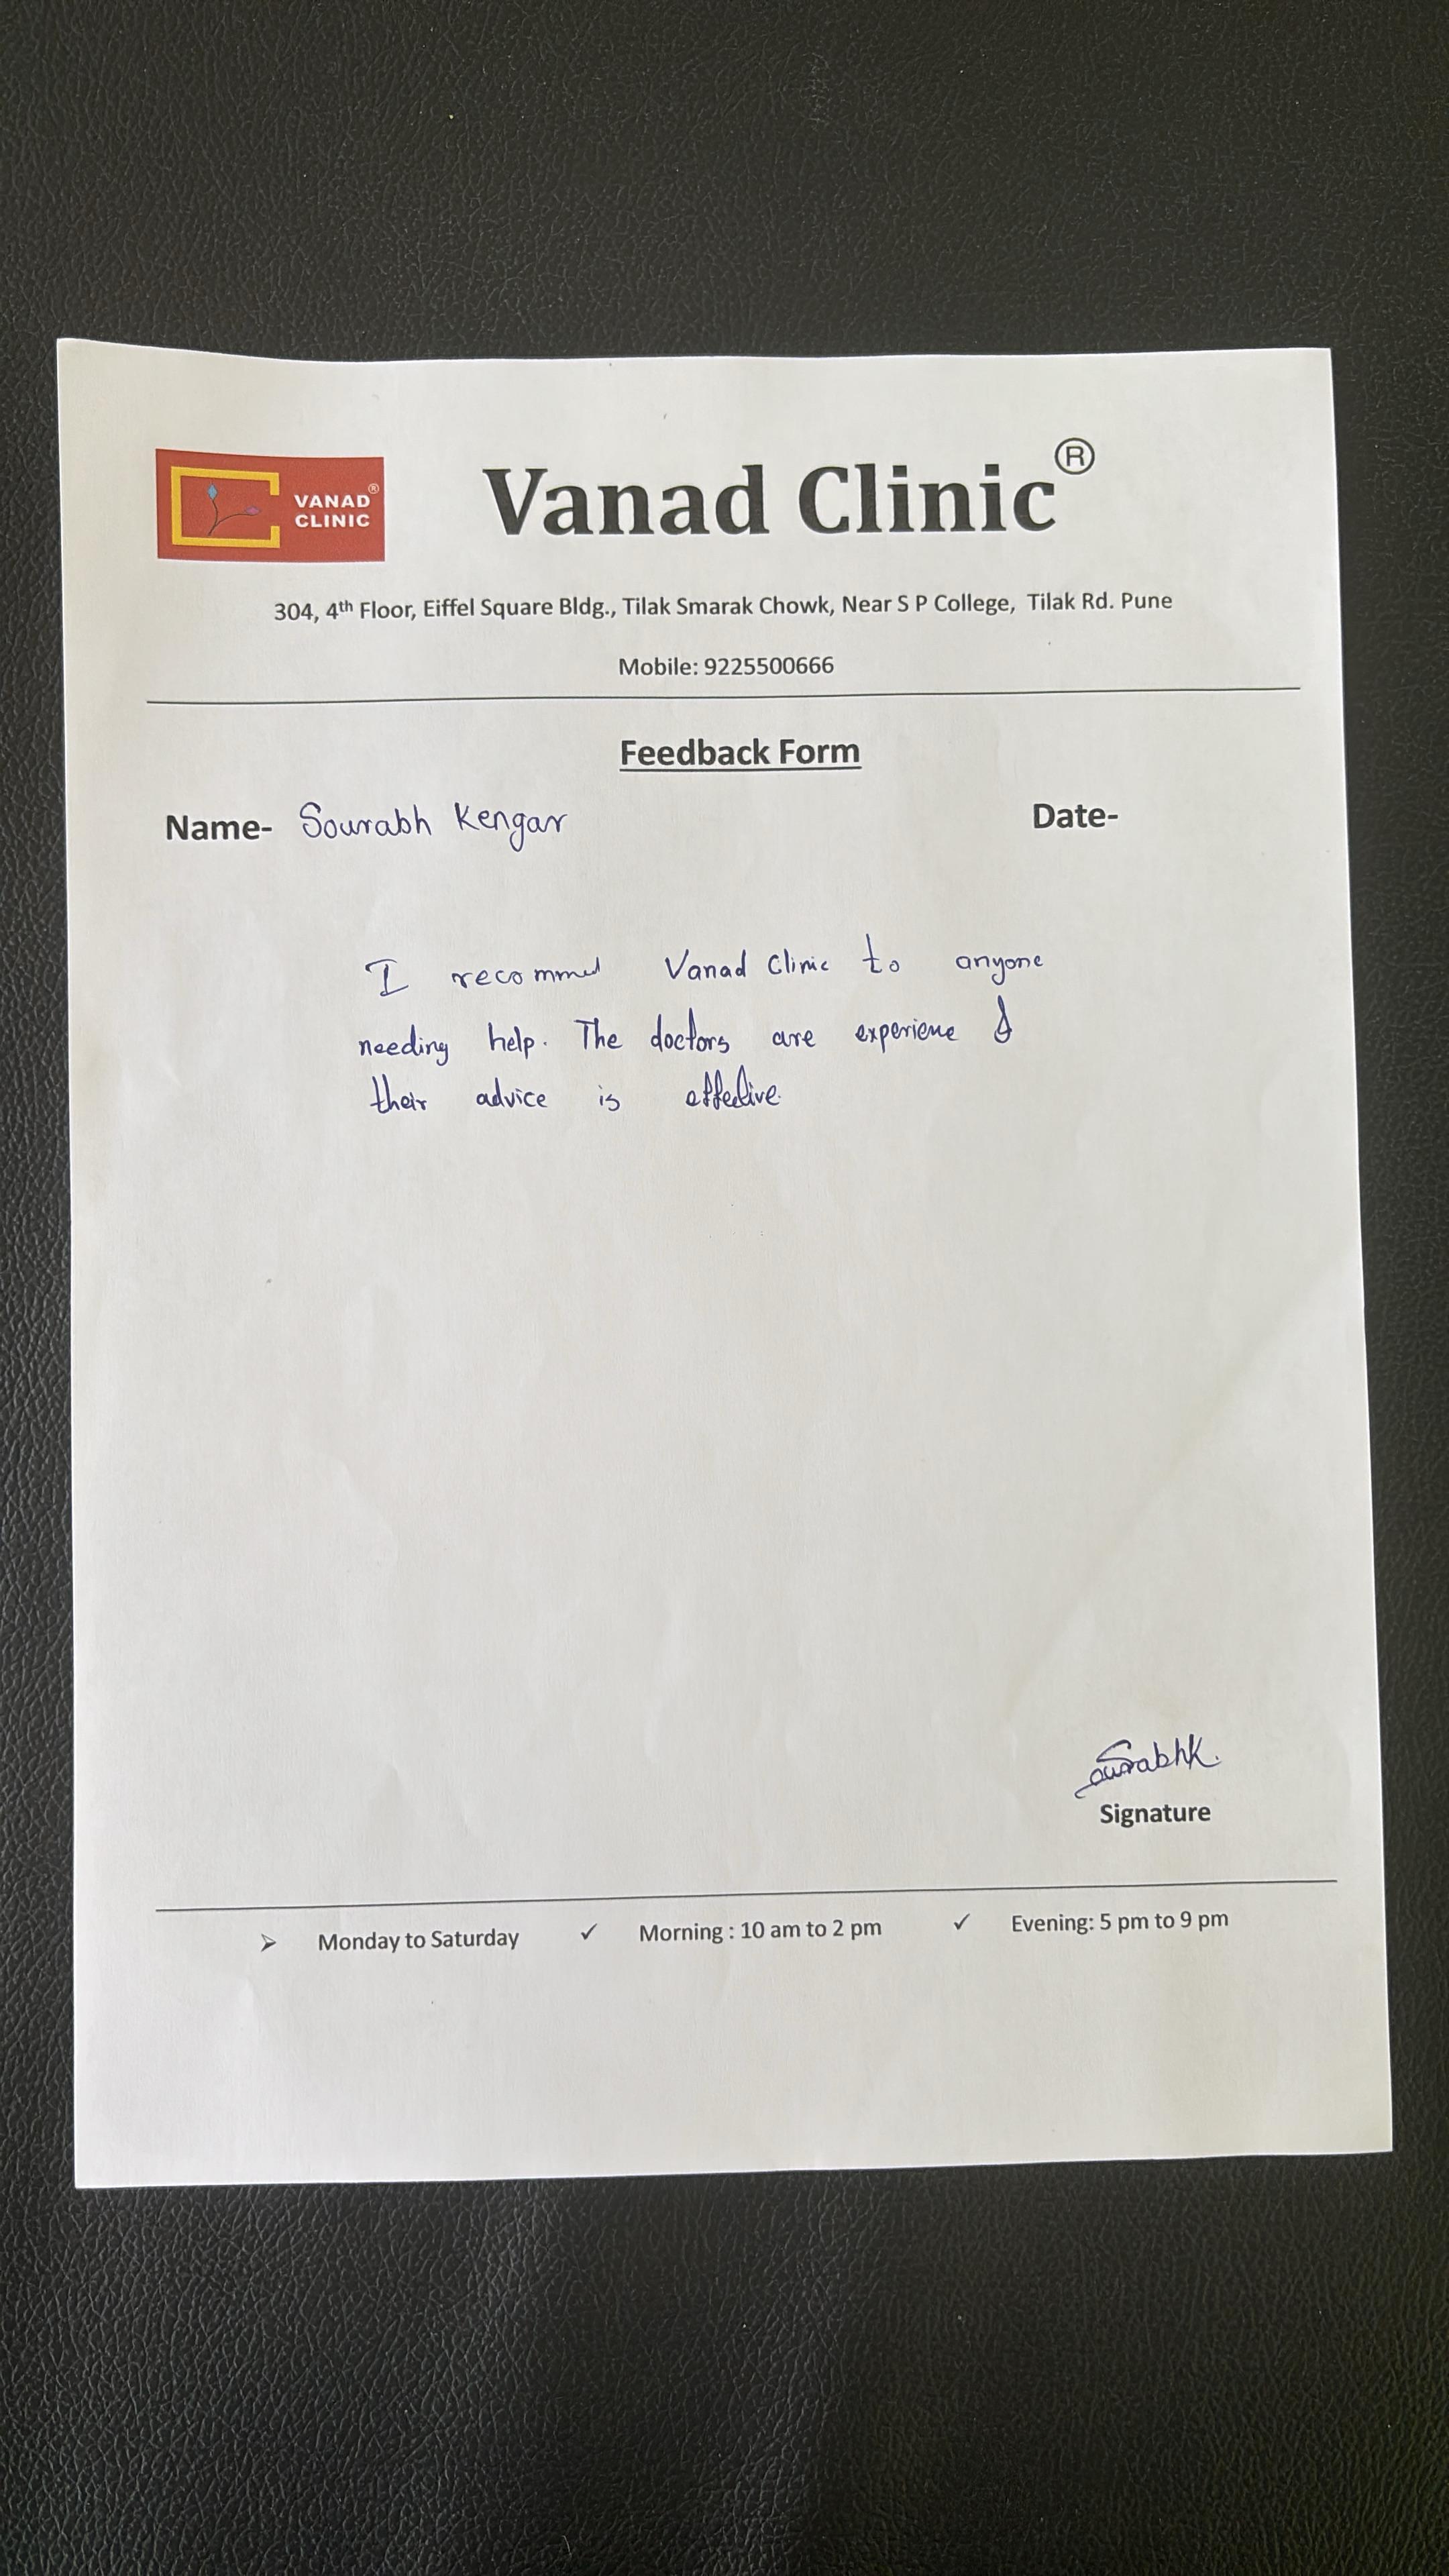 VANAD®
CLINIC
Vanad Clinic®
304, 4th Floor, Eiffel Square Bldg., Tilak Smarak Chowk, Near S P College, Tilak Rd. Pune
Mobile: 9225500666
Feedback Form
Name- Sourabh Kengar Date-
I recommed Vanad Clinic to anyone
needing help. The doctors are experiene &
their advice is effective.
SourabhK.
Signature
➢ Monday to Saturday ✓ Morning : 10 am to 2 pm ✓ Evening: 5 pm to 9 pm